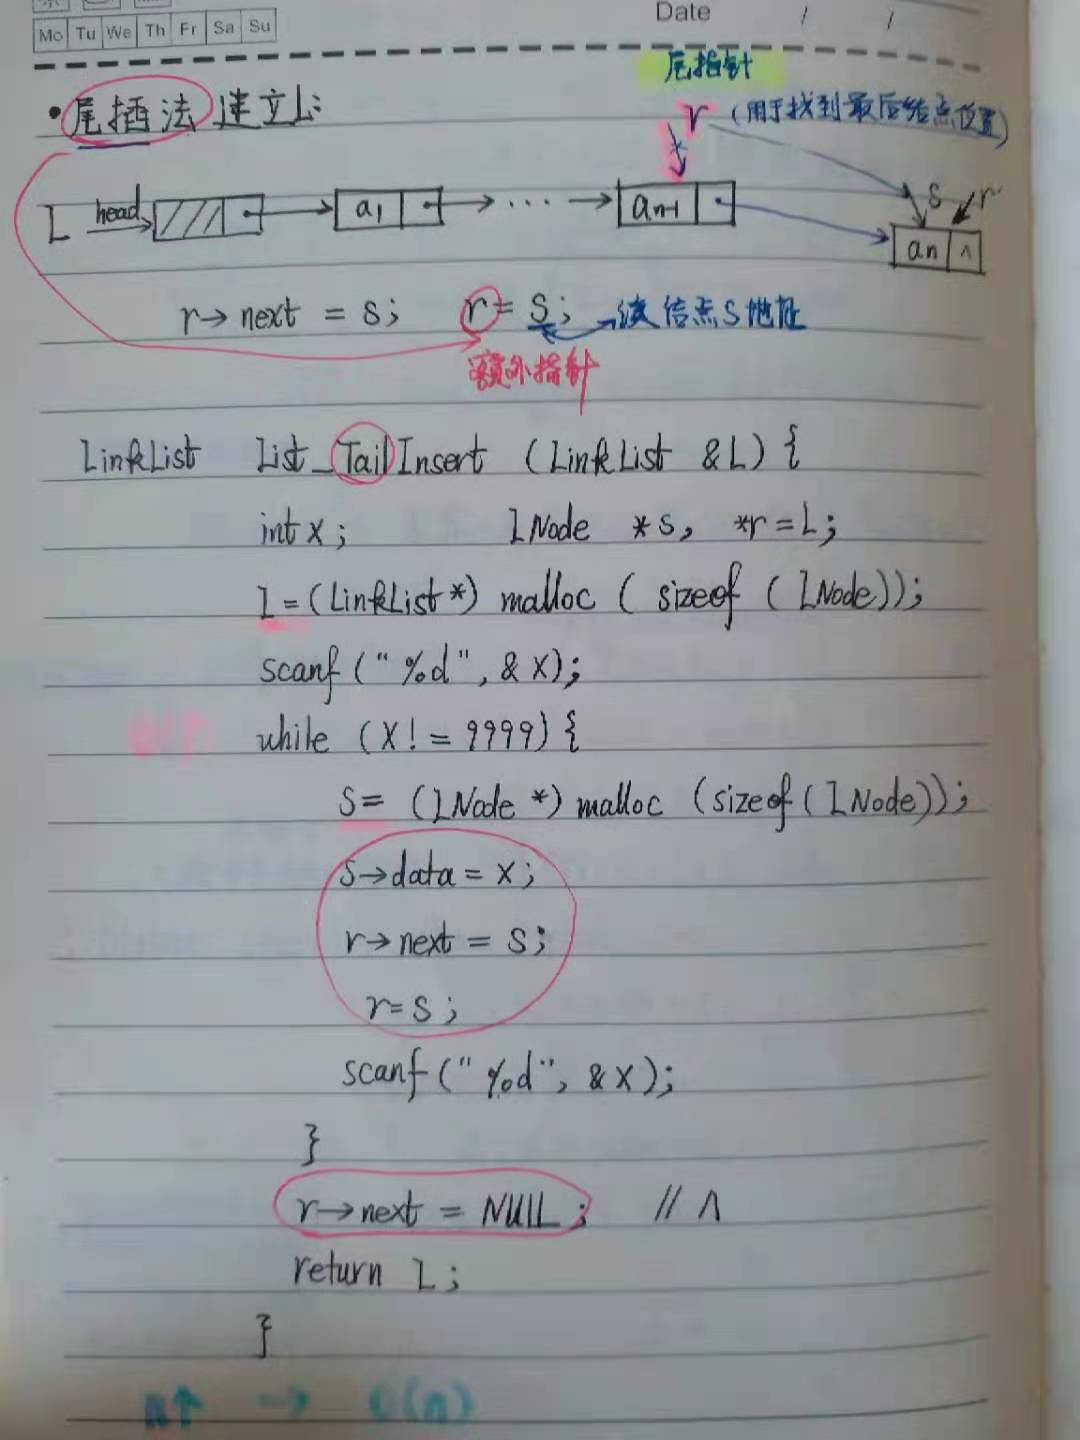 Mo Tu We Th Fr Sa Su
Date / /
尾指针
•尾插法 建立L:
r (用于找到最后结点位置)
L head a1 ... an-1 s r
an ∧
r→next = s; r = s; 读结点S地址
额外指针
LinkList List_TailInsert (LinkList &L) {
int x; LNode *s, *r=L;
L=(LinkList*) malloc ( sizeof (LNode));
scanf("%d", &x);
while (x!=9999){
s= (LNode *) malloc (sizeof(LNode));
s→data = x;
r→next = s;
r=s;
scanf("%d", &x);
}
r→next = NULL; // ∧
return L;
}
n↑ → O(n)